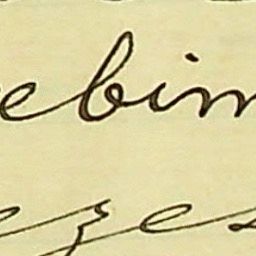 ebim
ezes